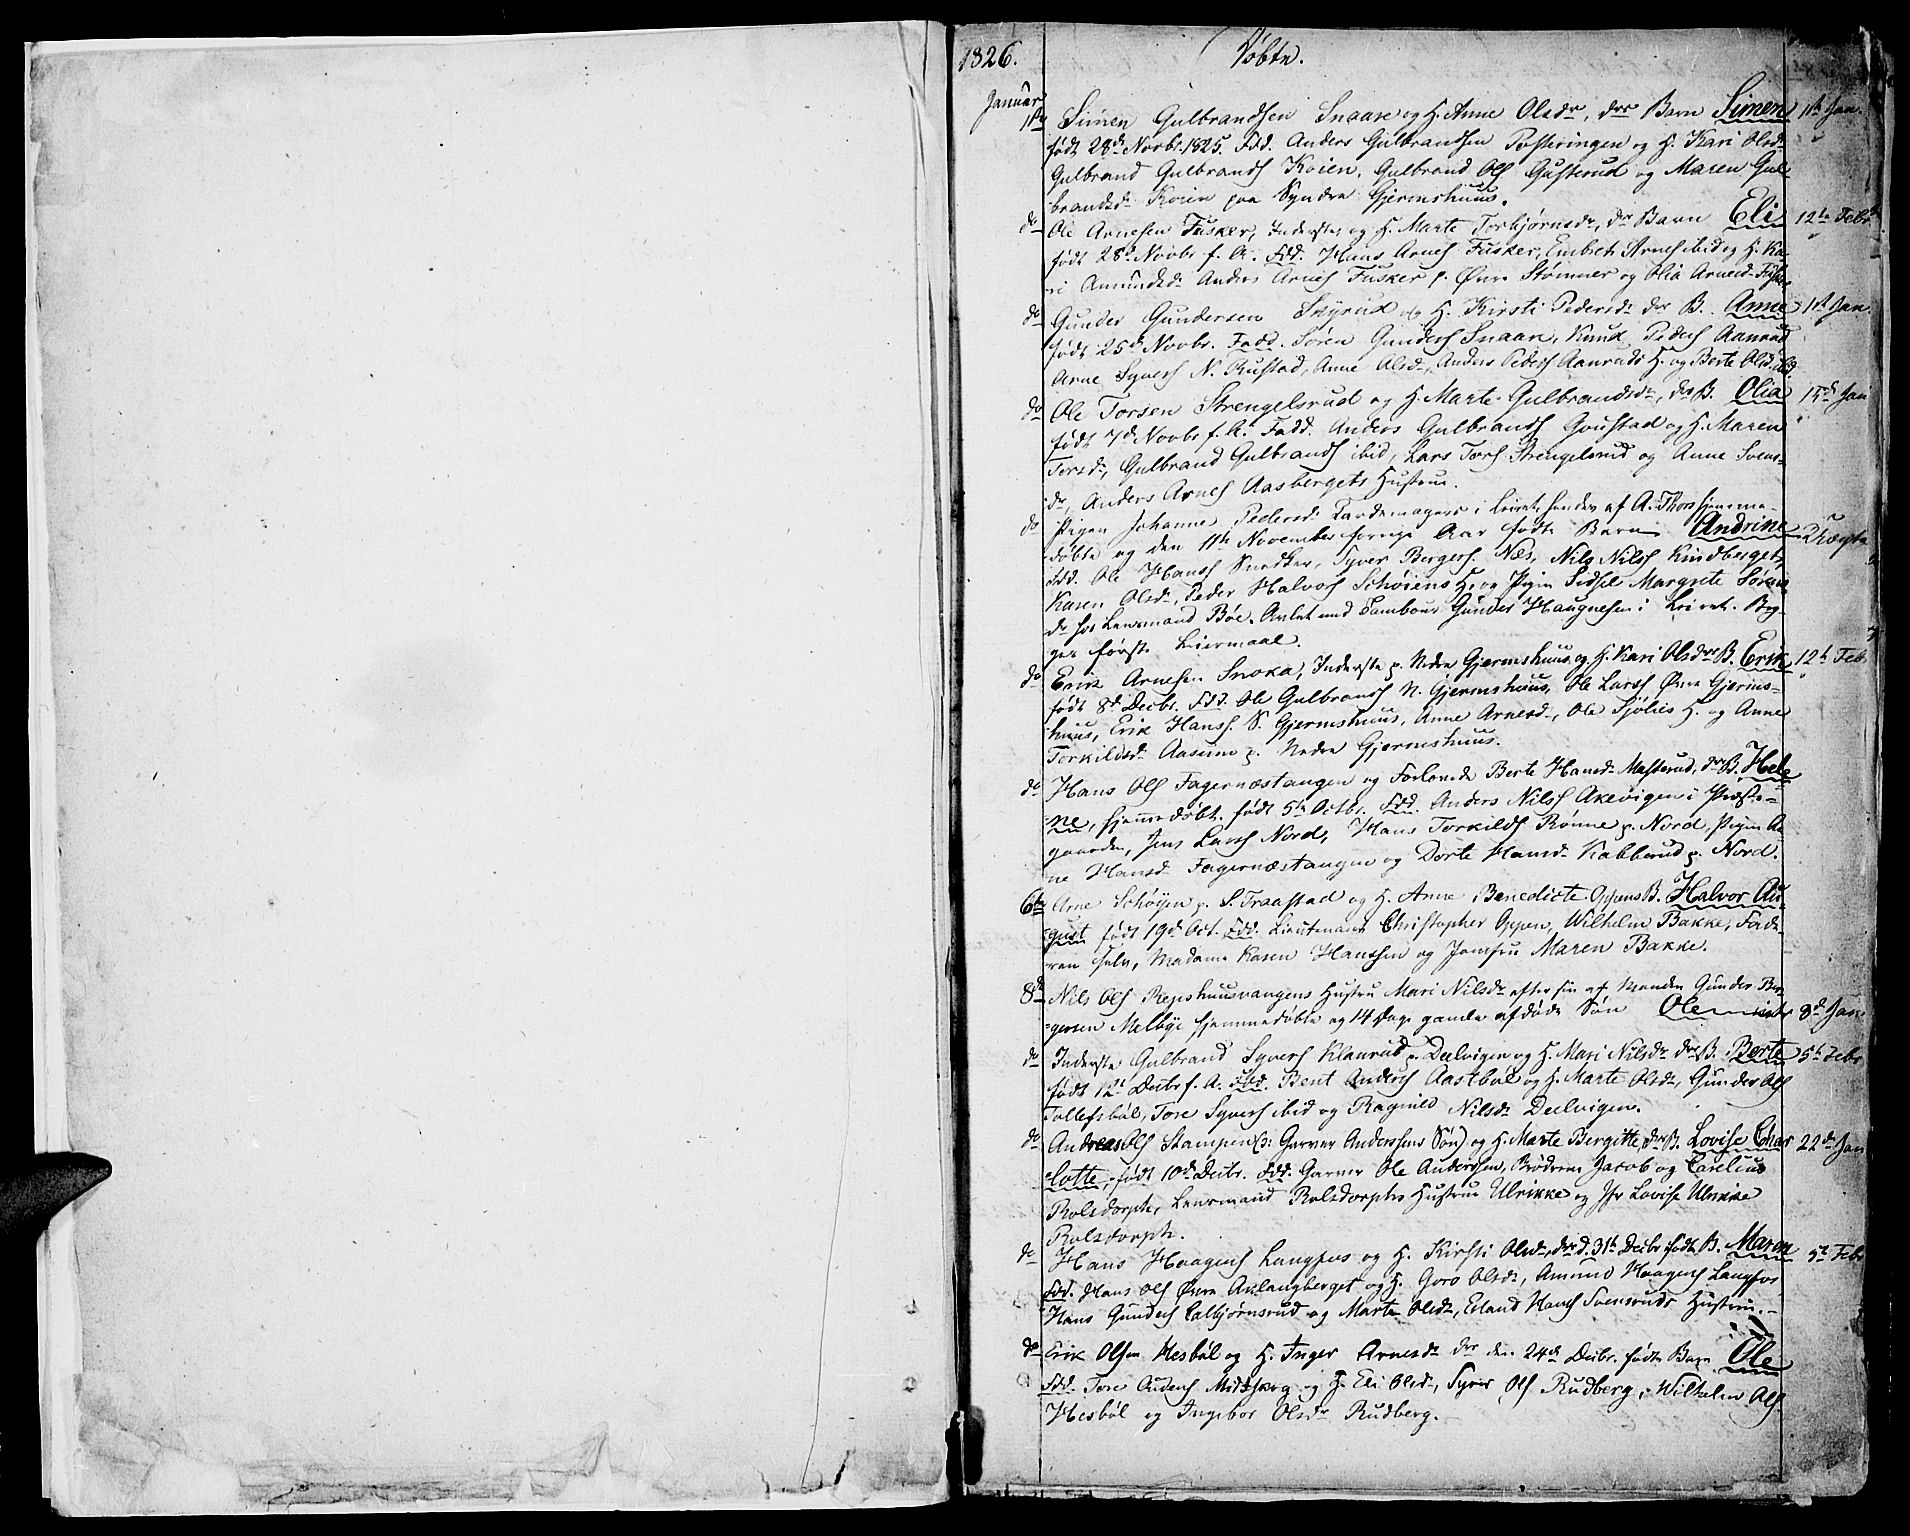 1826. Døbte.
Januar
1ste Simen Gulbrandsen Snaare og H. Anne Olsdr, drs Barn Simen 11te Jan.
født 28d Novbr. 1825. Fdd. Anders Gulbrandsen Posteringen og H. Kari Olsdr
Gulbrand Gulbrands Koien, Gulbrand Ols Gusterud og Maren Gul-
brandsdr Koien paa Syndre Gjermshuus.
do Ole Arnesen Fusker, Inderste, og H. Marte Torbjørnsdr, drs Barn Eli 12te Febr.
født 28d Novbr f. A. Fdd. Hans Arnes Fusker, Embret Arnes ibid og H. Ka-
ri Amundsdr Anders Arnes Fusker p. Øvre Stømner og Olia Arnesdr Fusker
do Gunder Gundersen Skyrud og H. Kirsti Pedersdr drs B. Anne 1ste Jan.
født 25d Novbr. Fadd. Søren Gunders Snaare, Knud Peders Aanrud
Arne Syvers N. Rustad, Anne Olsdr, Anders Peders Aanruds H. og Berte Olsdr ibid.
do Ole Torsen Strengelsrud og H. Marte Gulbrandsdr, drs B. Olia 15d Jan
født 7d Novbr f. A. Fadd. Anders Gulbrands Goustad og H. Maren
Torsdr, Gulbrand Gulbrands ibid, Lars Tors Strengelsrud og Anne Svens-
dr, Anders Arnes Aasbergets Hustrue.
do Pigen Johanne Pedersdr Kardemagers i Leiret, hendes af A. Thors hjemme-
døbte og den 11te November forrige Aar fødte Barn Andrine
Fdd. Ole Hans Snedker, Syver Bergers Næs, Nils Nils Kindberget,
Karen Olsdr, Peder Halvos Schøiens H. og Pigen Sidsel Margrete Sørens
dr hos Lensmand Böe. Avlet med Tambour Gunder Haagnesen i Leiret. Beg-
ges første Leiermaal.
do Erik Arnesen Snoka, Inderste p. Nedre Gjermshuus og H. Kari Olsdr drs B. Erik 12te Feb.
født 8d Decbr. Fdd. Ole Gulbrands N. Gjermshuus, Ole Lars Øvre Gjerms-
huus, Erik Hans S. Gjermshuus, Anne Arnesdr, Ole Sjølies H. og Anne
Torkildsdr Aasum p. Nedre Gjermshuus.
do Hans Ols Fagernæstangen og Forlovede Berte Hansdr Masterud, drs B. Hele-
ne, hjemmedøbt. født 5te Octbr. Fdd. Anders Nils Akevigen i Præste-
gaarden, Jens Lars Nord, Hans Torkilds Rønne p. Nord, Pigen An-
ne Hansdr Fagernæstangen og Dorte Hansdr Kabberud p. Nord.
6te Arne Schöyen p. S. Traastad og H. Anne Benedicte Oppens B. Halvor Au-
gust født 19d Oct. Fdd. Lieutenant Christopher Oppen, Wilhelm Bakke, Fade-
ren selv, Madame Karen Hanssen og Jomfru Maren Bakke.
8d Nils Ols Repshuusvangens Hustru Mari Nilsdr efter sin af Manden Gunder Ber-
gersen Melbye hjemmedøbte og 14 Dage gamle afdøde Søn Ole 8d Jan
do Inderste Gulbrand Syvers Klanrud p. Dulvigen og H. Mari Nilsdr drs B. Berte 5te Febr.
født Decbr f. A. Fdd. Bent Anders Aastböl og H. Marte Olsdr, Gunder Ols
Tollefsböl, Tore Syvers ibid og Ragnild Nilsdr Dulvigen.
do Andreas Ols Stampen (: Garver Anderssens Søn) og H. Marte Bergitte, drs B. Lovise Char 22d Jan
lotte, født 10d Decbr. Fdd. Garver Ole Anderssen, Brødrene Jacob og Carelius
Rolsdorph, Lensmand Rolsdorphs Hustrue Ulrikke og Jfr Lovise Ulrikke
Rolsdorph.
do Hans Haagens Langfos og H. Kirsti Olsdr, drs d. 31te Decbr fødte B. Maren 5te Febr
Fdd. Hans Ols Øvre Aslangberget og H. Goro Olsdr, Amund Haagens Langfos,
Hans Gunders Calbjørnsrud og Marte Olsdr, Erland Hans Svensruds Hustrue.
do Erik Olsen Hesböl og H. Inger Arnesdr drs den 24d Decbr. fødte Barn Ole
Fdd. Tore Audens Midskog og H. Eli Olsdr, Syver Ols Rudberg, Wilhelm Ols
Hesböl og Ingebor Olsdr Rudberg.